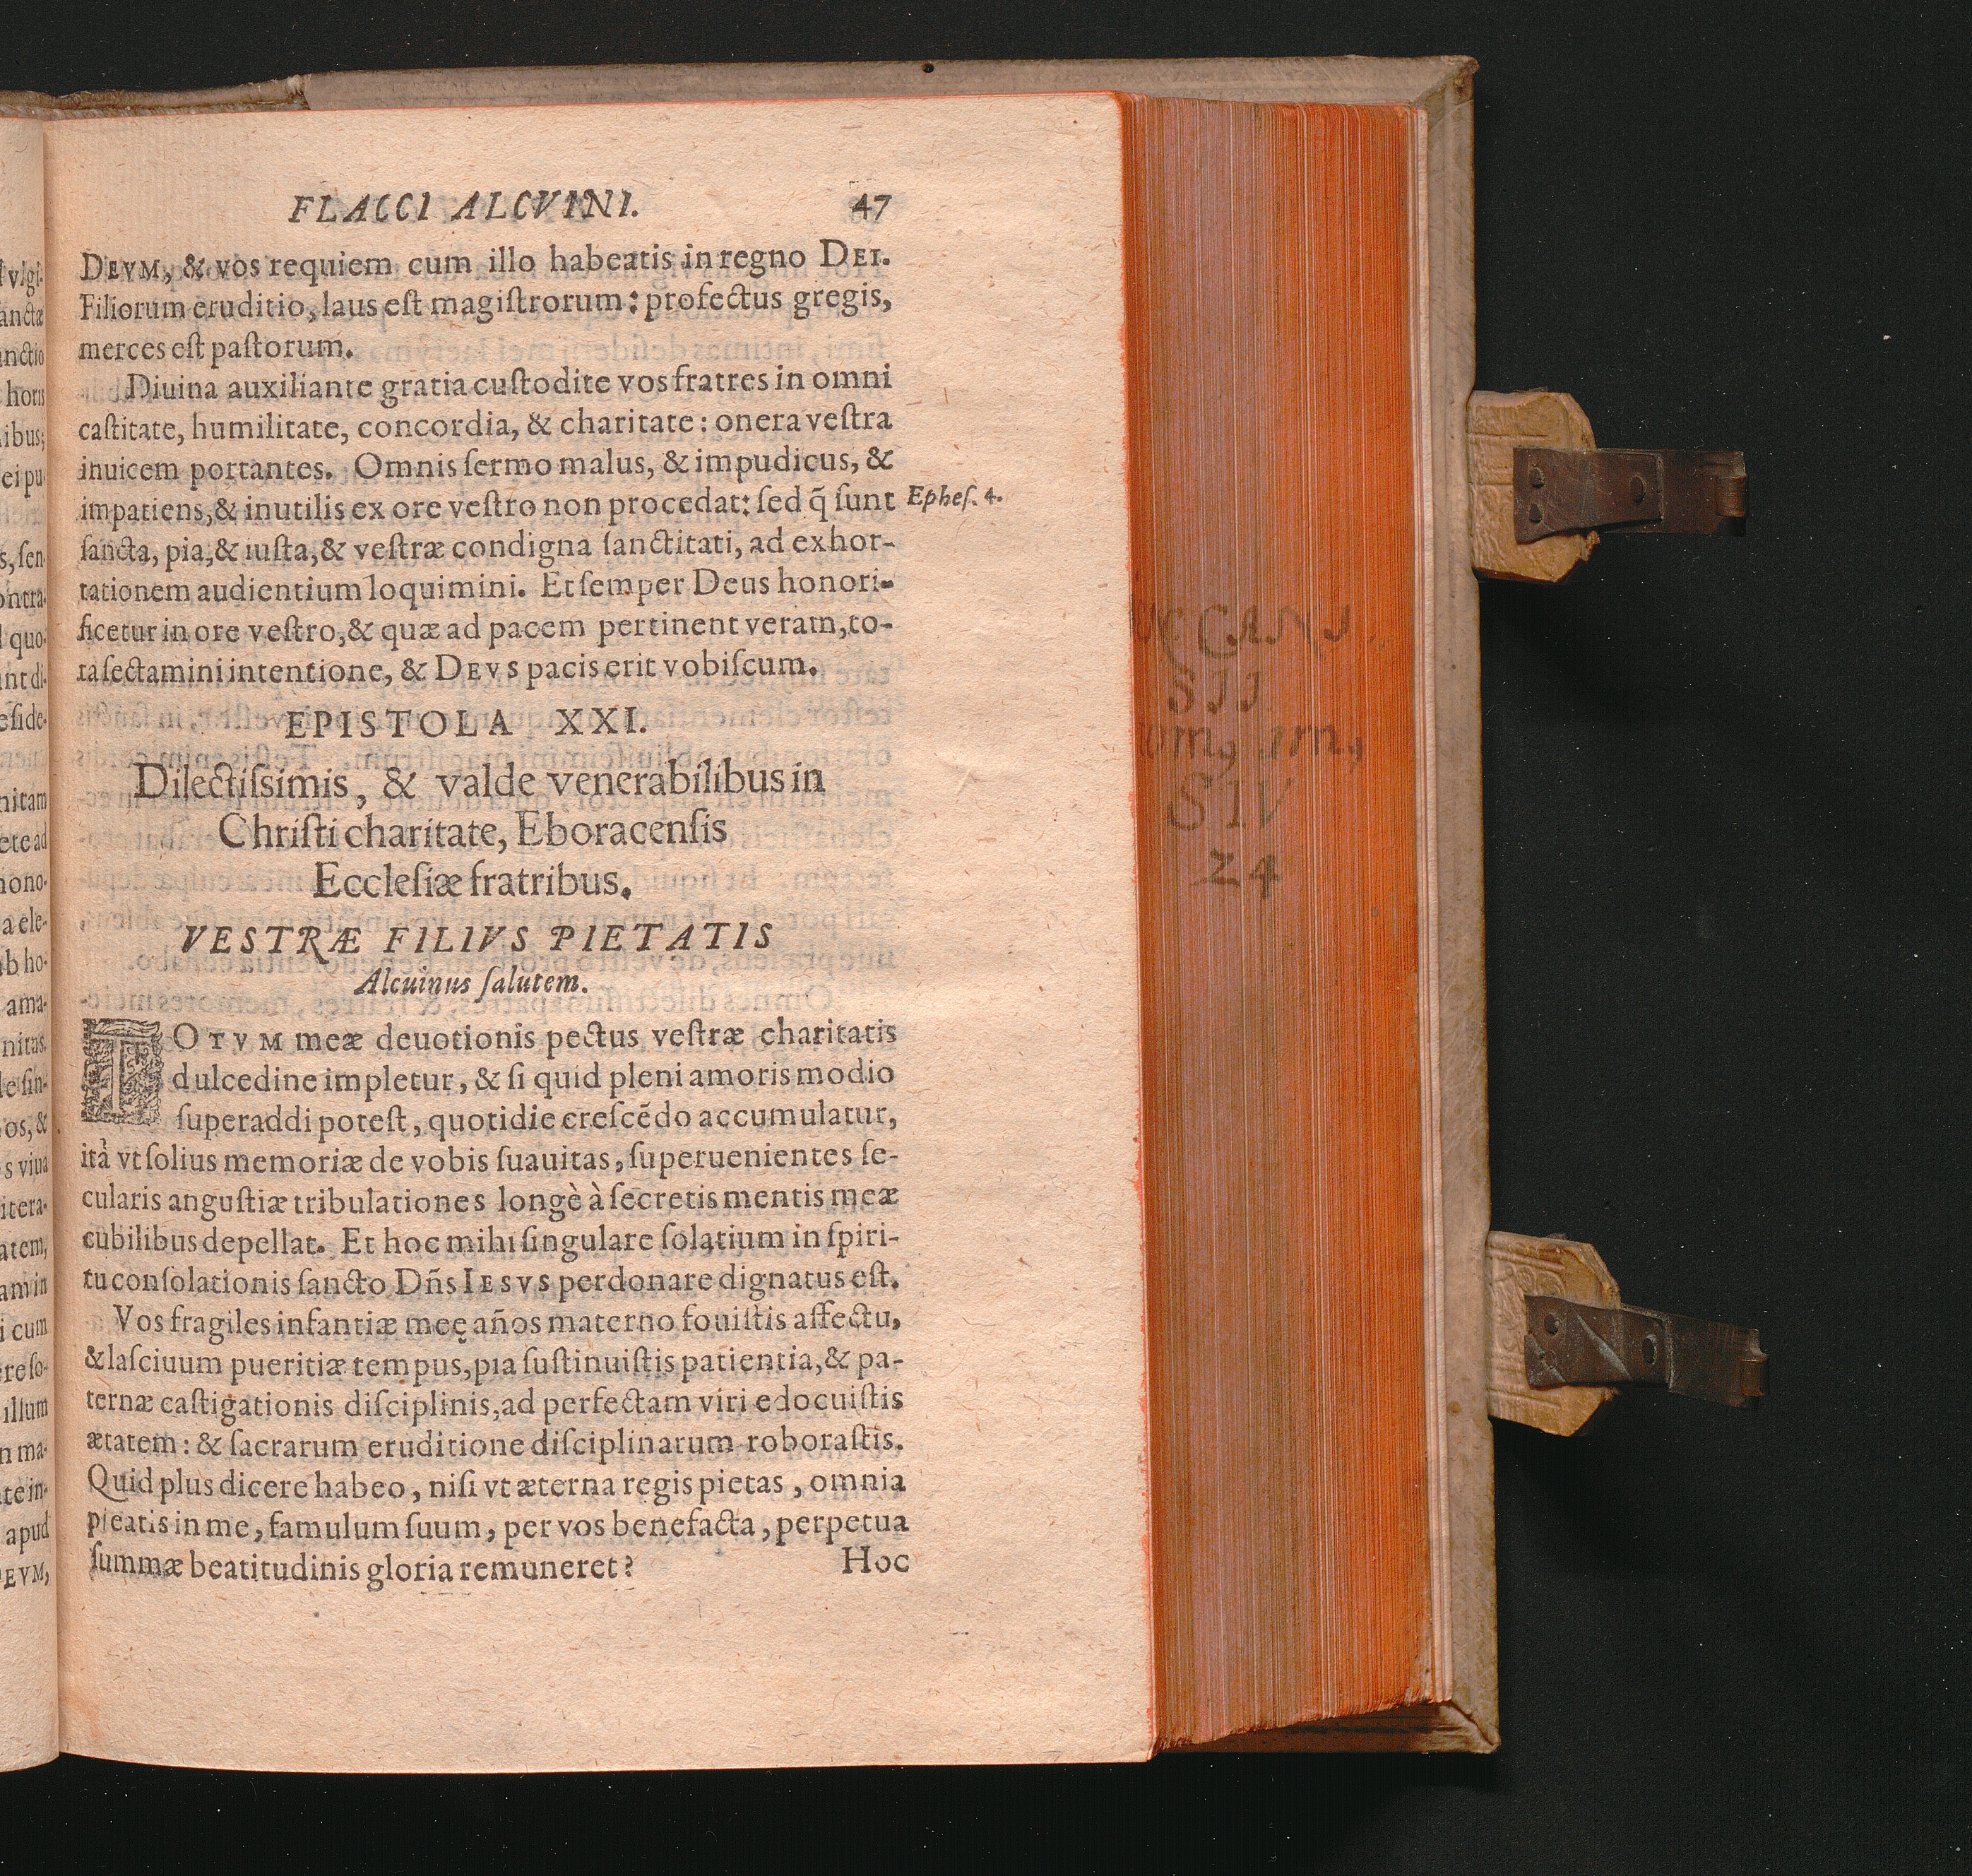 FLACCI ALCVINI. 47
DEVM, & vos requiem cum illo habeatis in regno DEI.
Filiorum eruditio, laus eſt magiſtrorum: profectus gregis,
merces eſt paſtorum.
Diuina auxiliante gratia cuſtodite vos fratres in omni
caſtitate, humilitate, concordia, & charitate: onera veſtra
inuicem portantes. Omnis ſermo malus, & impudicus, &
impatiens, & inutilis ex ore veſtro non procedat: ſed q̃ ſunt Epheſ. 4.
ſancta, pia, & iuſta, & veſtræ condigna ſanctitati, ad exhor-
tationem audientium loquimini. Et ſemper Deus honori-
ficetur in ore veſtro, & quæ ad pacem pertinent veram, to-
ta ſectamini intentione, & DEVS pacis erit vobiſcum.
EPISTOLA XXI.
Dilectiſsimis, & valde venerabilibus in
Chriſti charitate, Eboracenſis
Eccleſiæ fratribus.
VESTRÆ FILIVS PIETATIS
Alcuinus ſalutem.
TOTVM meæ deuotionis pectus veſtræ charitatis
dulcedine impletur, & ſi quid pleni amoris modio
ſuperaddi poteſt, quotidie creſcẽdo accumulatur,
ità vt ſolius memoriæ de vobis ſuauitas, ſuperuenientes ſe-
cularis anguſtiæ tribulationes longè à ſecretis mentis meæ
cubilibus depellat. Et hoc mihi ſingulare ſolatium in ſpiri-
tu conſolationis ſancto Dñs IESVS perdonare dignatus eſt.
Vos fragiles infantiæ meę años materno fouiſtis affectu,
& laſciuum pueritiæ tempus, pia ſuſtinuiſtis patientia, & pa-
ternæ caſtigationis diſciplinis, ad perfectam viri edocuiſtis
ætatem: & ſacrarum eruditione diſciplinarum roboraſtis.
Quid plus dicere habeo, niſi vt æterna regis pietas, omnia
pieatis in me, famulum ſuum, per vos benefacta, perpetua
ſummæ beatitudinis gloria remuneret? Hoc
S I V
24